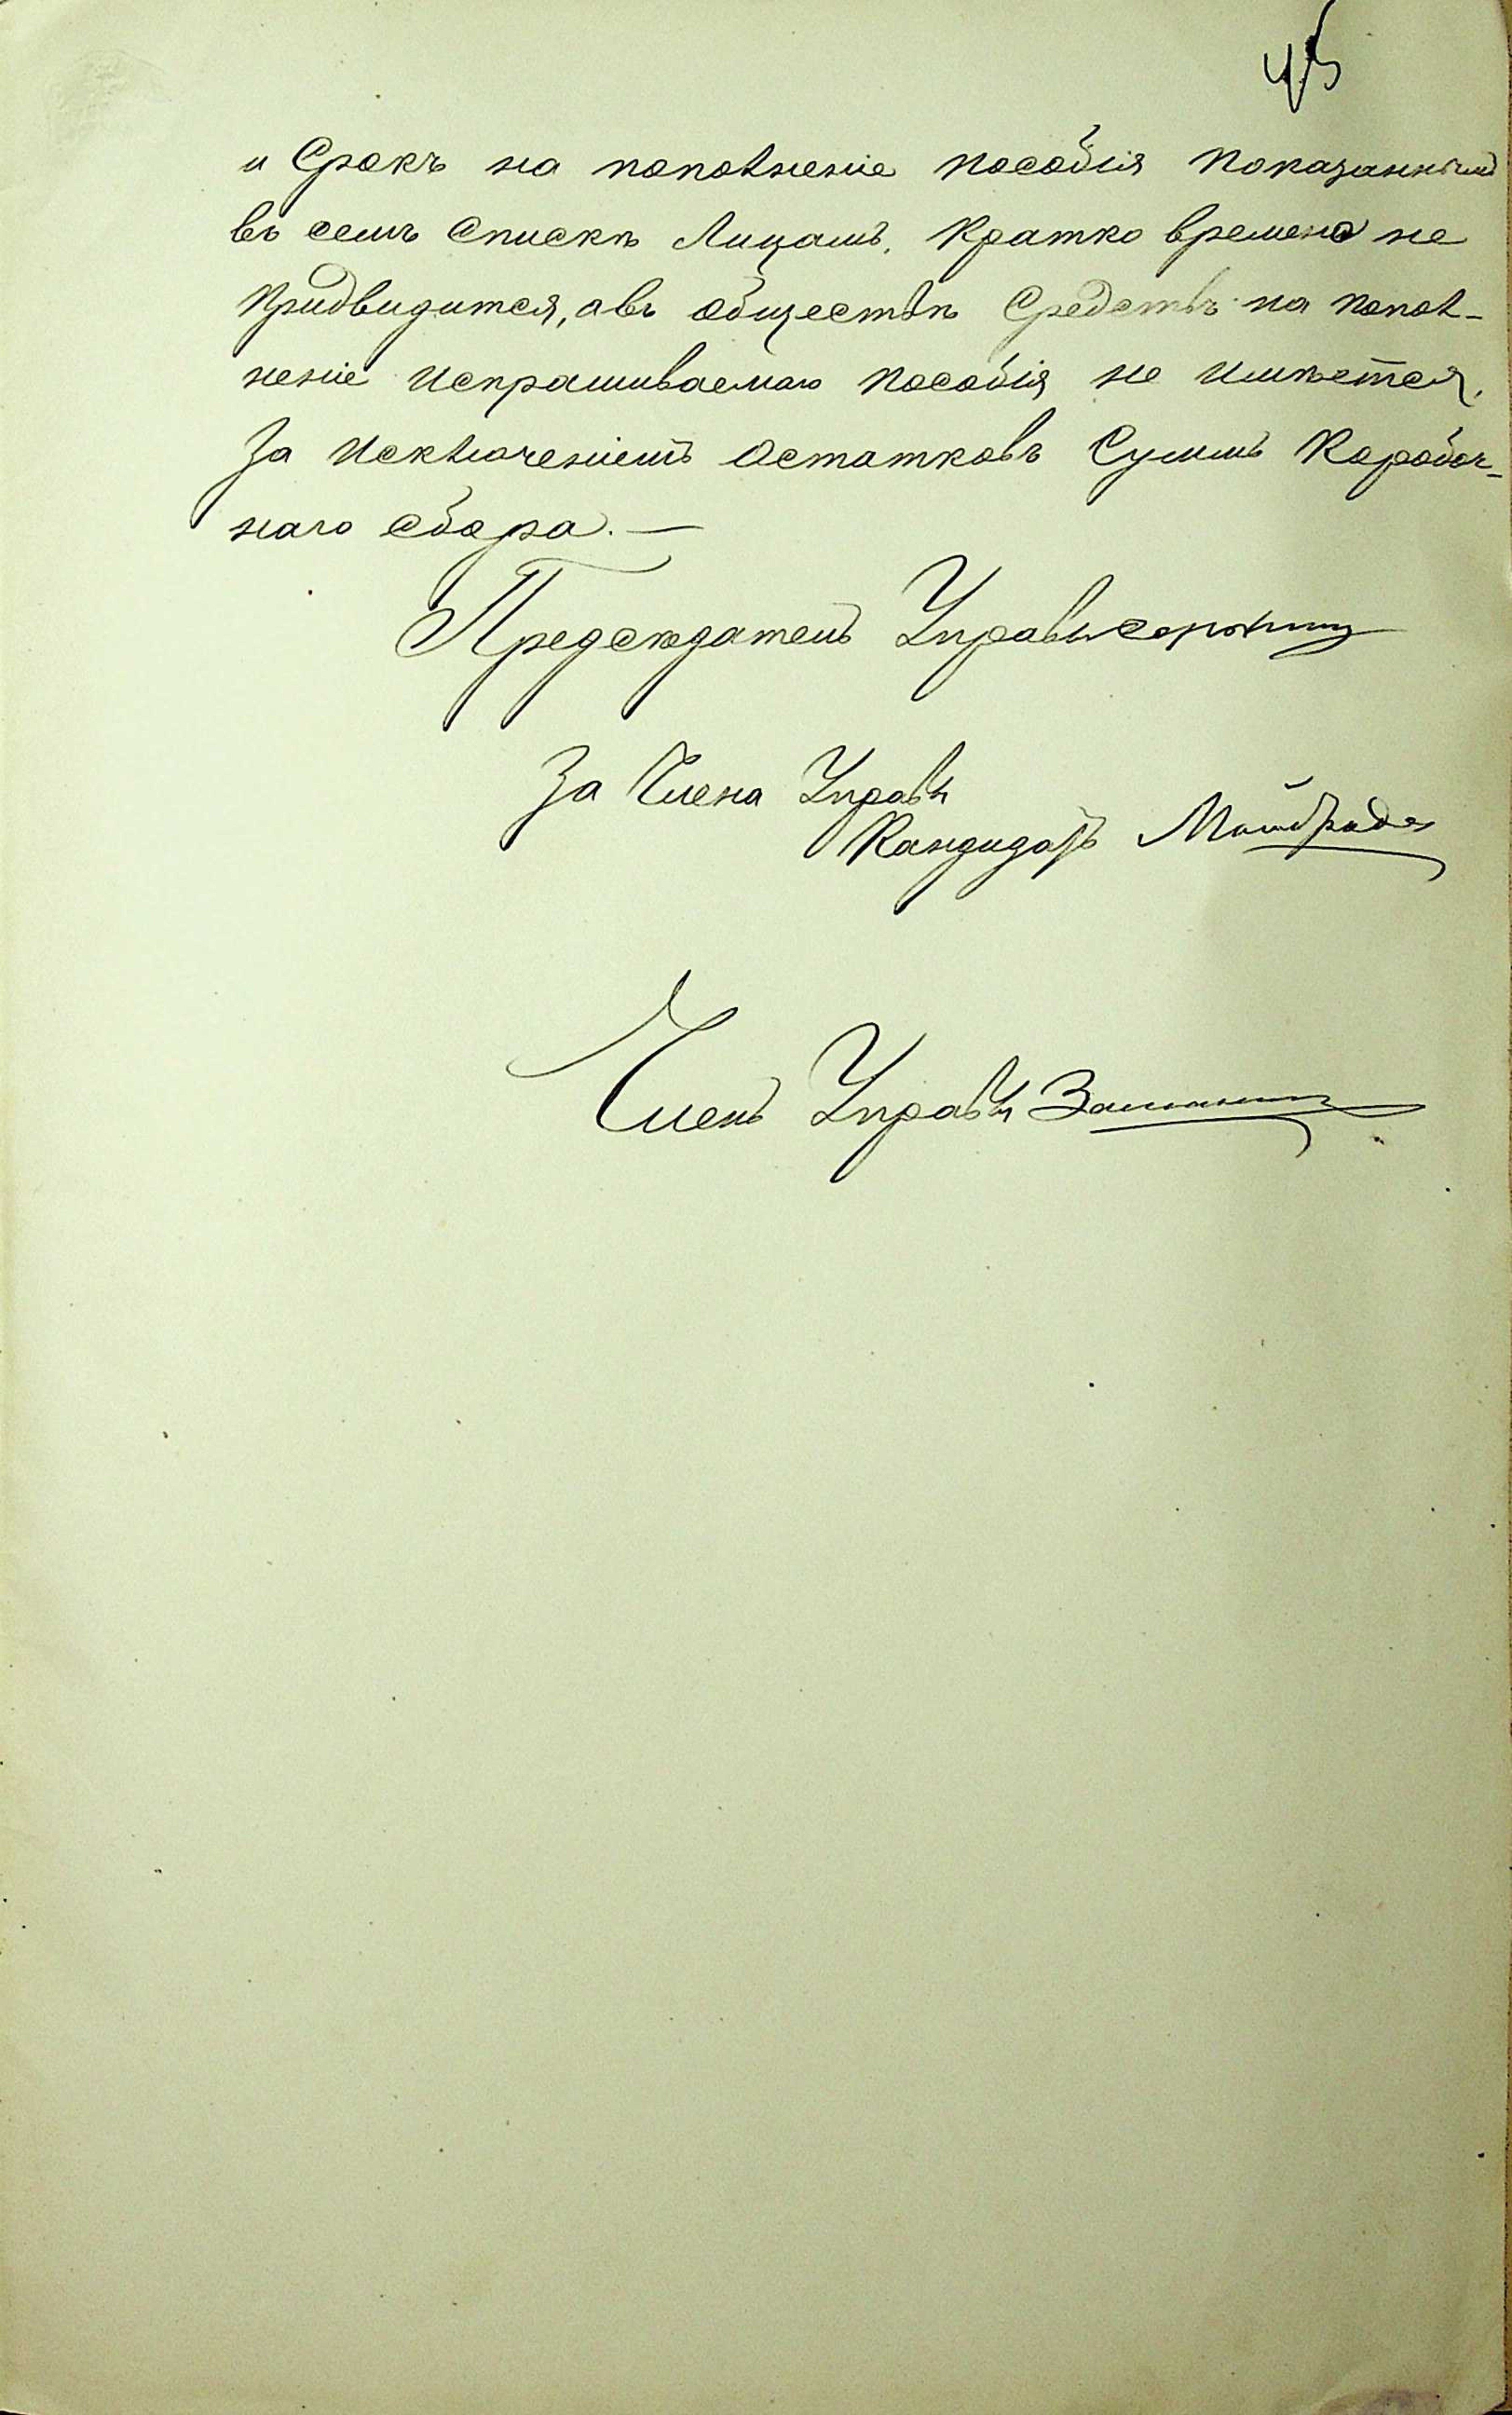 45
и Срокъ на пополненіе пособія Показаннымъ
въ семъ Спискѣ Лицамъ. Кратко времено не
Придвидится, авъ обществѣ Средствъ на попол-
неніе Испрашиваемаго пособія не Имѣется,
За Исключеніемъ Остатковъ Суммъ Коробоч-
наго сбора. —
Предсѣдатель Управы
За Члена Управы
Кандидатъ
Членъ Управы